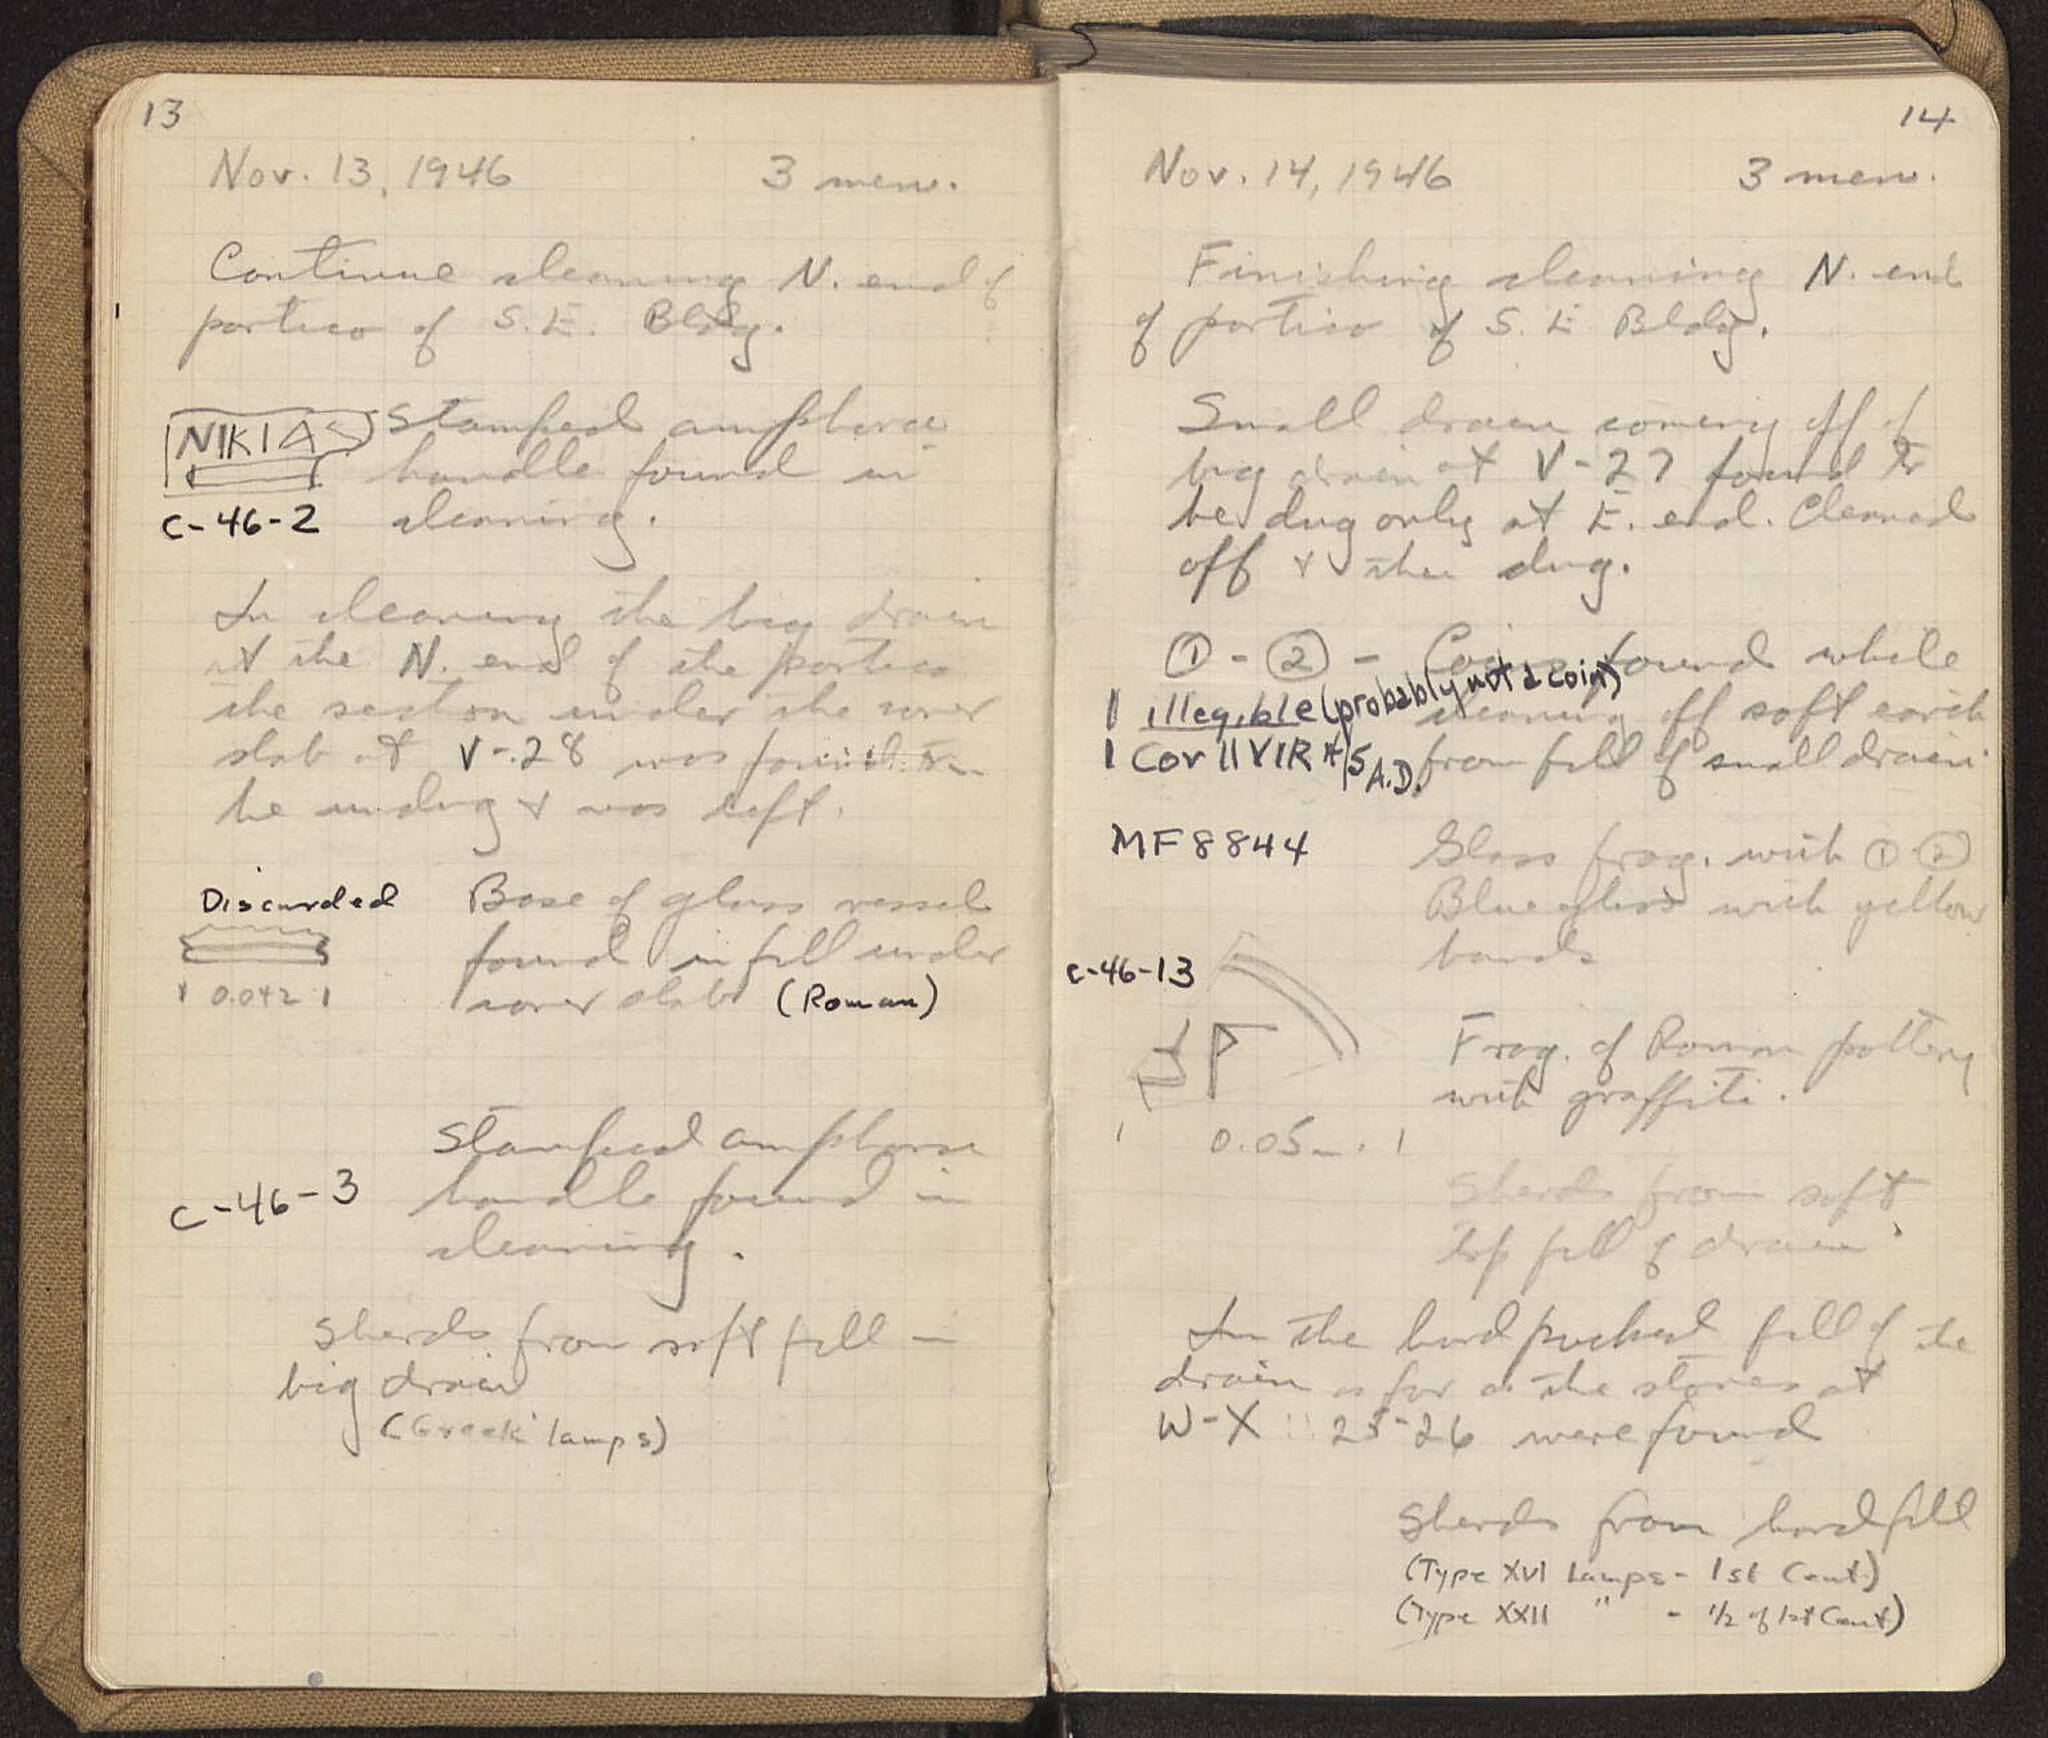 13
Nov. 13, 1946 3 men.
Continue cleaning N. end of
portico of S. E. Bldg.
NIKIAS
C-46-2
Stamped amphora
handle found in
cleaning.
In cleaning the big drain
at the N. end of the portico
the section under the cover
slab at V-28 was found to
be undug & was left.
Discarded
0.042
Base of glass vessel
found in fill under
cover slab (Roman)
C-46-3
Stamped amphora
handle found in
cleaning.
Sherds from soft fill in
big drain
(Greek lamps)
14
Nov. 14, 1946 3 men.
Finishing cleaning N. end
of portico of S. E Bldg.
Small drain coming off of
big drain at V-27 found to
be dug only at E. end. Cleaned
off & then dug.
① - ② - Coins found while
cleaning off soft earth
from fill of small drain
1 illegible (probably not a coin)
1 Cor II VIR 4/5 A.D.
MF8844
Glass frag. with ① ②
Blue glass with yellow
bands
C-46-13
0.05m.
Frag. of Roman pottery
with graffiti.
Sherds from soft
top fill of drain
In the hard packed fill of the
drain as far as the stones at
W-X : 25-26 were found
Sherds from hard fill
(Type XVI Lamps - 1st Cent.)
(Type XXII " - 1/2 of 1st Cent)